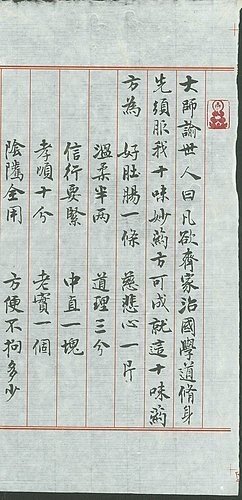 大師諭世人曰凡欲齊家治國學道脩身
先須服我十味妙藥方可成就這十味藥
方為　好肚腸一條　慈悲心一片
溫柔半两　道理三分
信行要緊　中直一塊
孝順十分　老實一個
陰隲全用　方便不拘多少